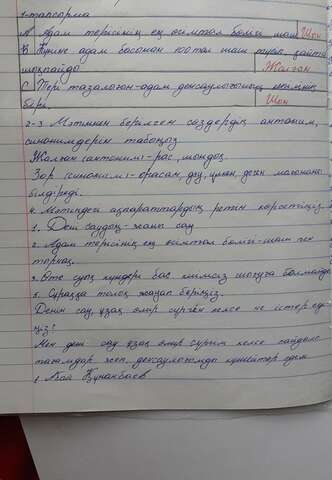 1-тапсырма
А адам терісінің ең қымбат бөлігі шаш Шын
В Күніне адам басынан 100тал шаш түсіп, қайта
шықпайды Жалған
С Тері тазалығы-адам денсаулығының кепілінің
бірі. Шын
2-3 Мәтіннен берілген сөздердің антоним,
синонимдерін табыңыз
Жалған (антоним) - рас, шындық.
Зор (синоним) - орасан, дәу, үлкен, деген мағынаны
білдіреді.
4. Мәтіндегі ақпараттардың ретін көрсетіңіз
1. Дені саудың-жаны сау
2. Адам терісінің ең қымбат бөлігі-шаш пен
тырнақ.
3. Өте суық күндері бас киімсіз шығуға болмайды
5. Сұраққа толық жауап беріңіз.
Деніңіз сау, ұзақ өмір сүргіңіз келсе не істер еді
ңіз?
Мен дені сау ұзақ өмір сүргім келсе пайдалы
тағамдар жеп, денсаулығымды күшейтер едім.
Абай Құнанбаев